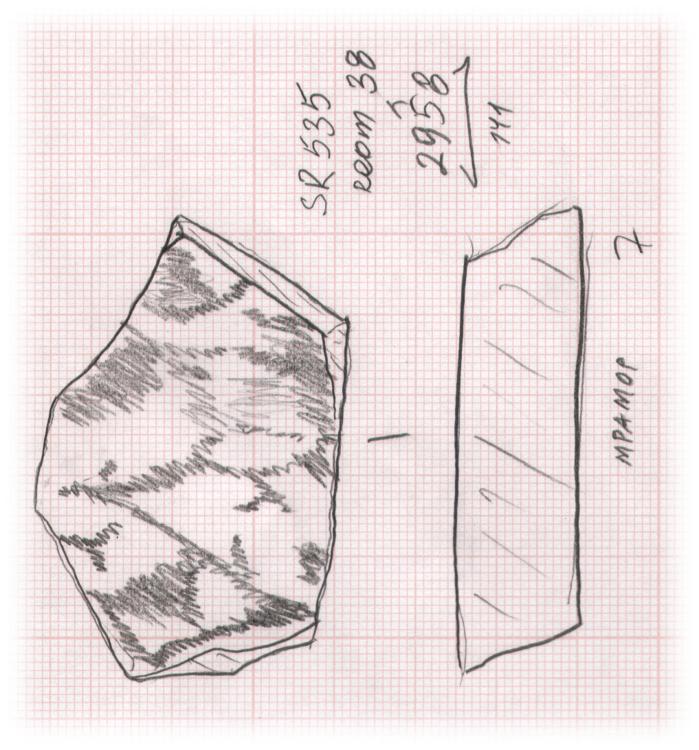 SR 535
room 38
2958
141
7
МРАМОР